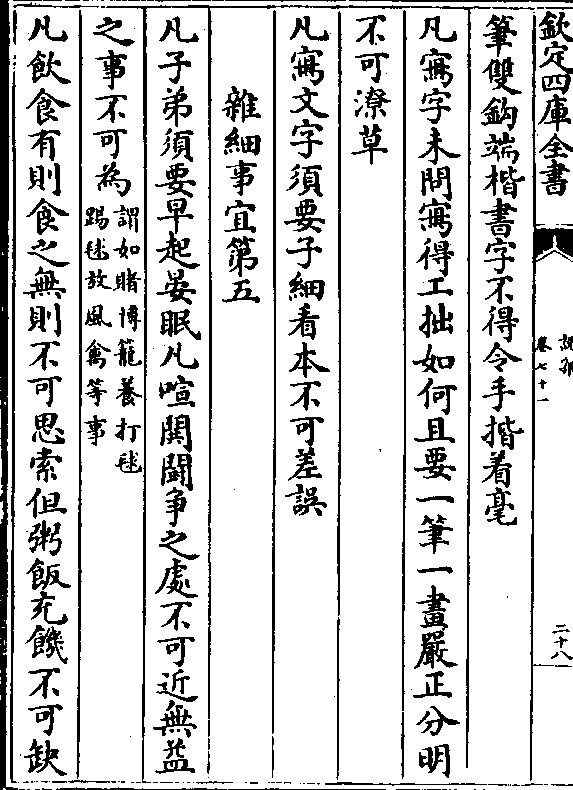 欽定四庫全書
說郛
卷七十一
二十八
筆雙鈎端楷書字不得令手揩着毫
凡寫字未問寫得工拙如何且要一筆一畫嚴正分明
不可潦草
凡寫文字須要子細看本不可差誤
雜細事宜第五
凡子弟須要早起晏眠凡喧鬨鬭争之處不可近無益
之事不可為謂如賭博籠養打毬
踢毬放風禽等事
凡飲食有則食之無則不可思索但粥飯充饑不可缺